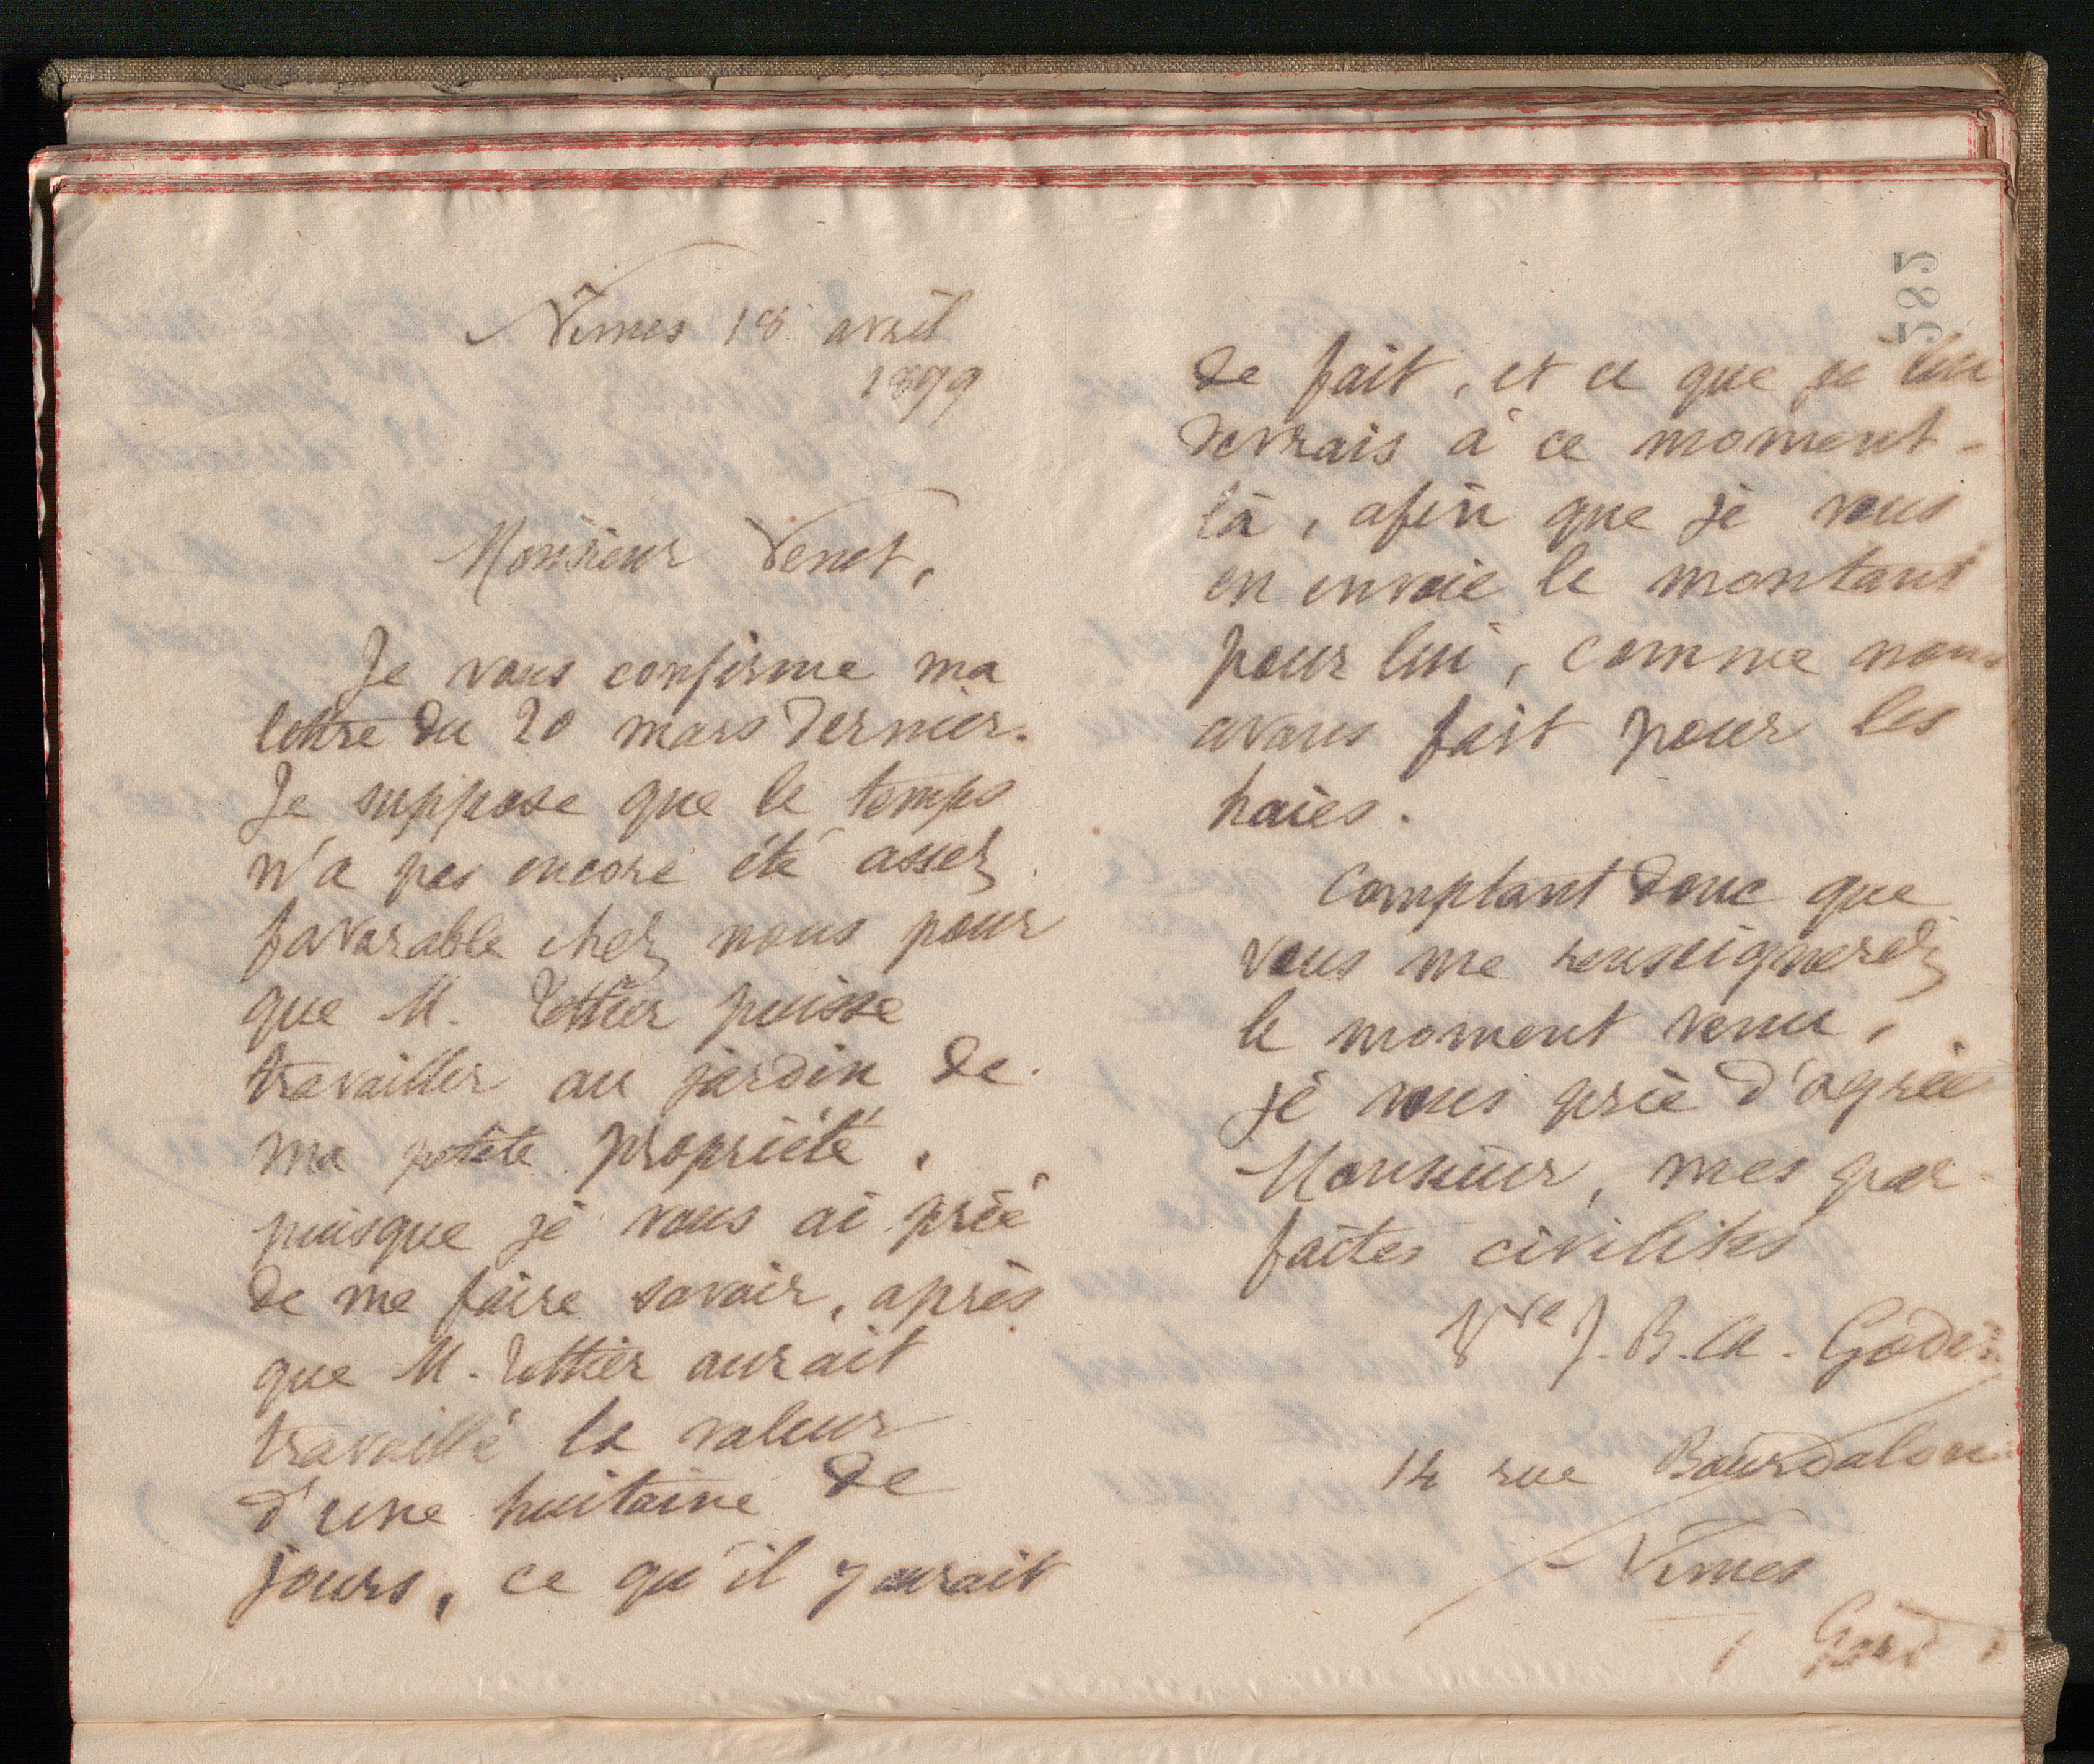 Nîmes 18 avril
1899
Monsieur Venet,
Je vous confirme ma
lettre du 20 mars dernier.
Je suppose que le temps
n'a pas encore été assez
favorable chez nous pour
que M. puisse
travailler au jardin de
ma petite propriété,
puisque je vous ai prié
de me faire savoir, après
que M. aurait
travaillé la valeur
d'une huitaine de
jours, ce qu'il y aurait
585
de fait, et ce que je lui
devrais à ce moment-
là, afin que je vous
en envoie le montant
pour lui, comme nous
avons fait pour les
haies.
Comptant donc que
vous me renseignerez
le moment venu,
je vous prie d'agréer
Monsieur, mes par-
faites civilités
Vve J. B. A. Godin
14 rue Bourdaloue
Nîmes
Gard